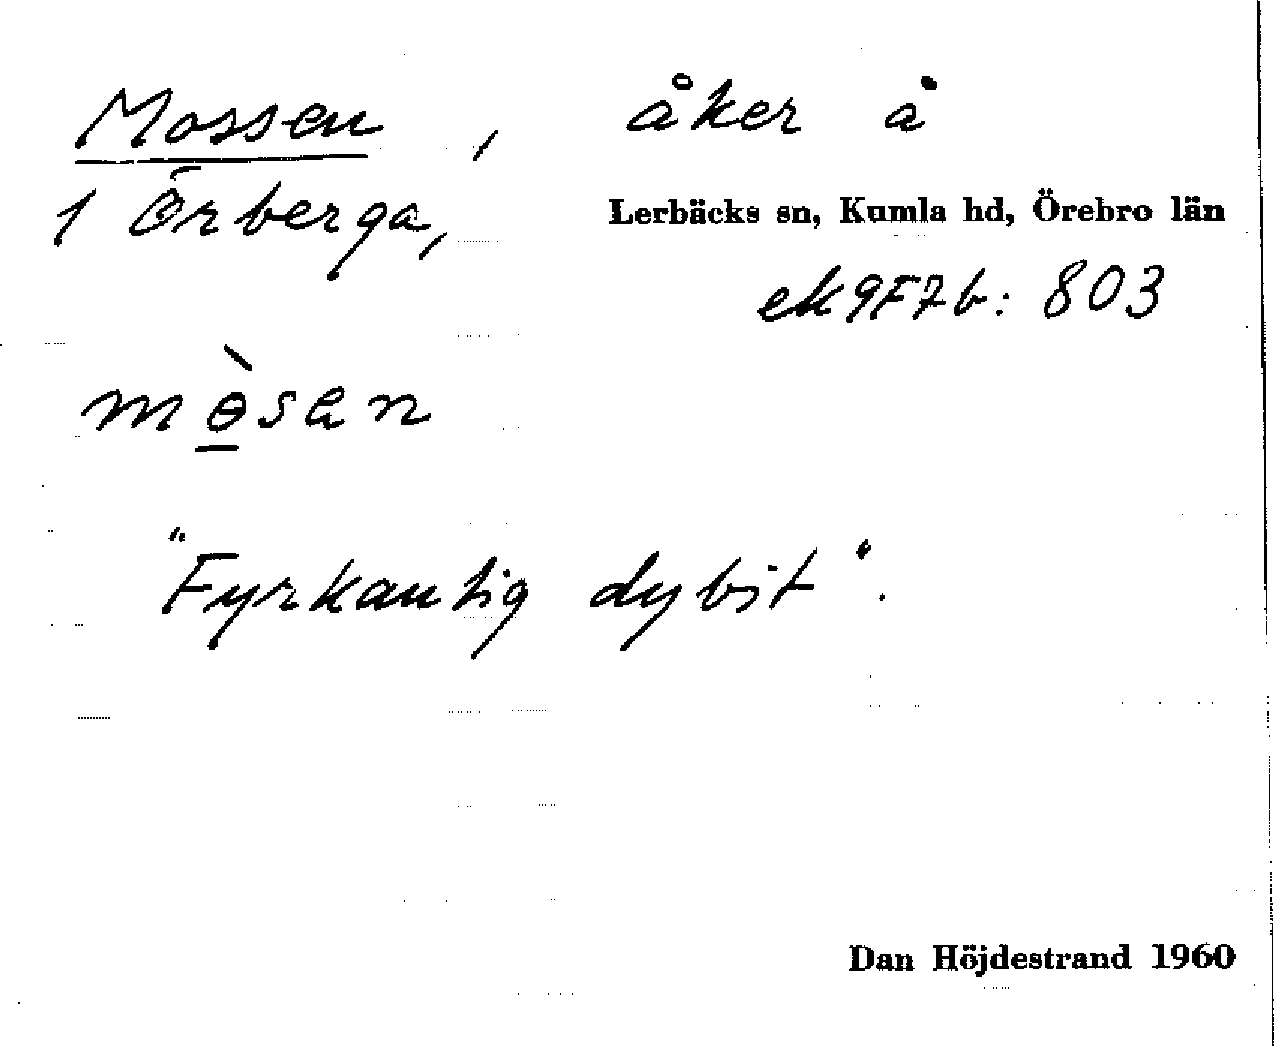 Mossen, åker å
1 Örberga, Lerbäcks sn, Kumla hd, Örebro län
ek 9F7b: 803
mɵ̀san
"Fyrkantig dybit".
Dan Höjdestrand 1960